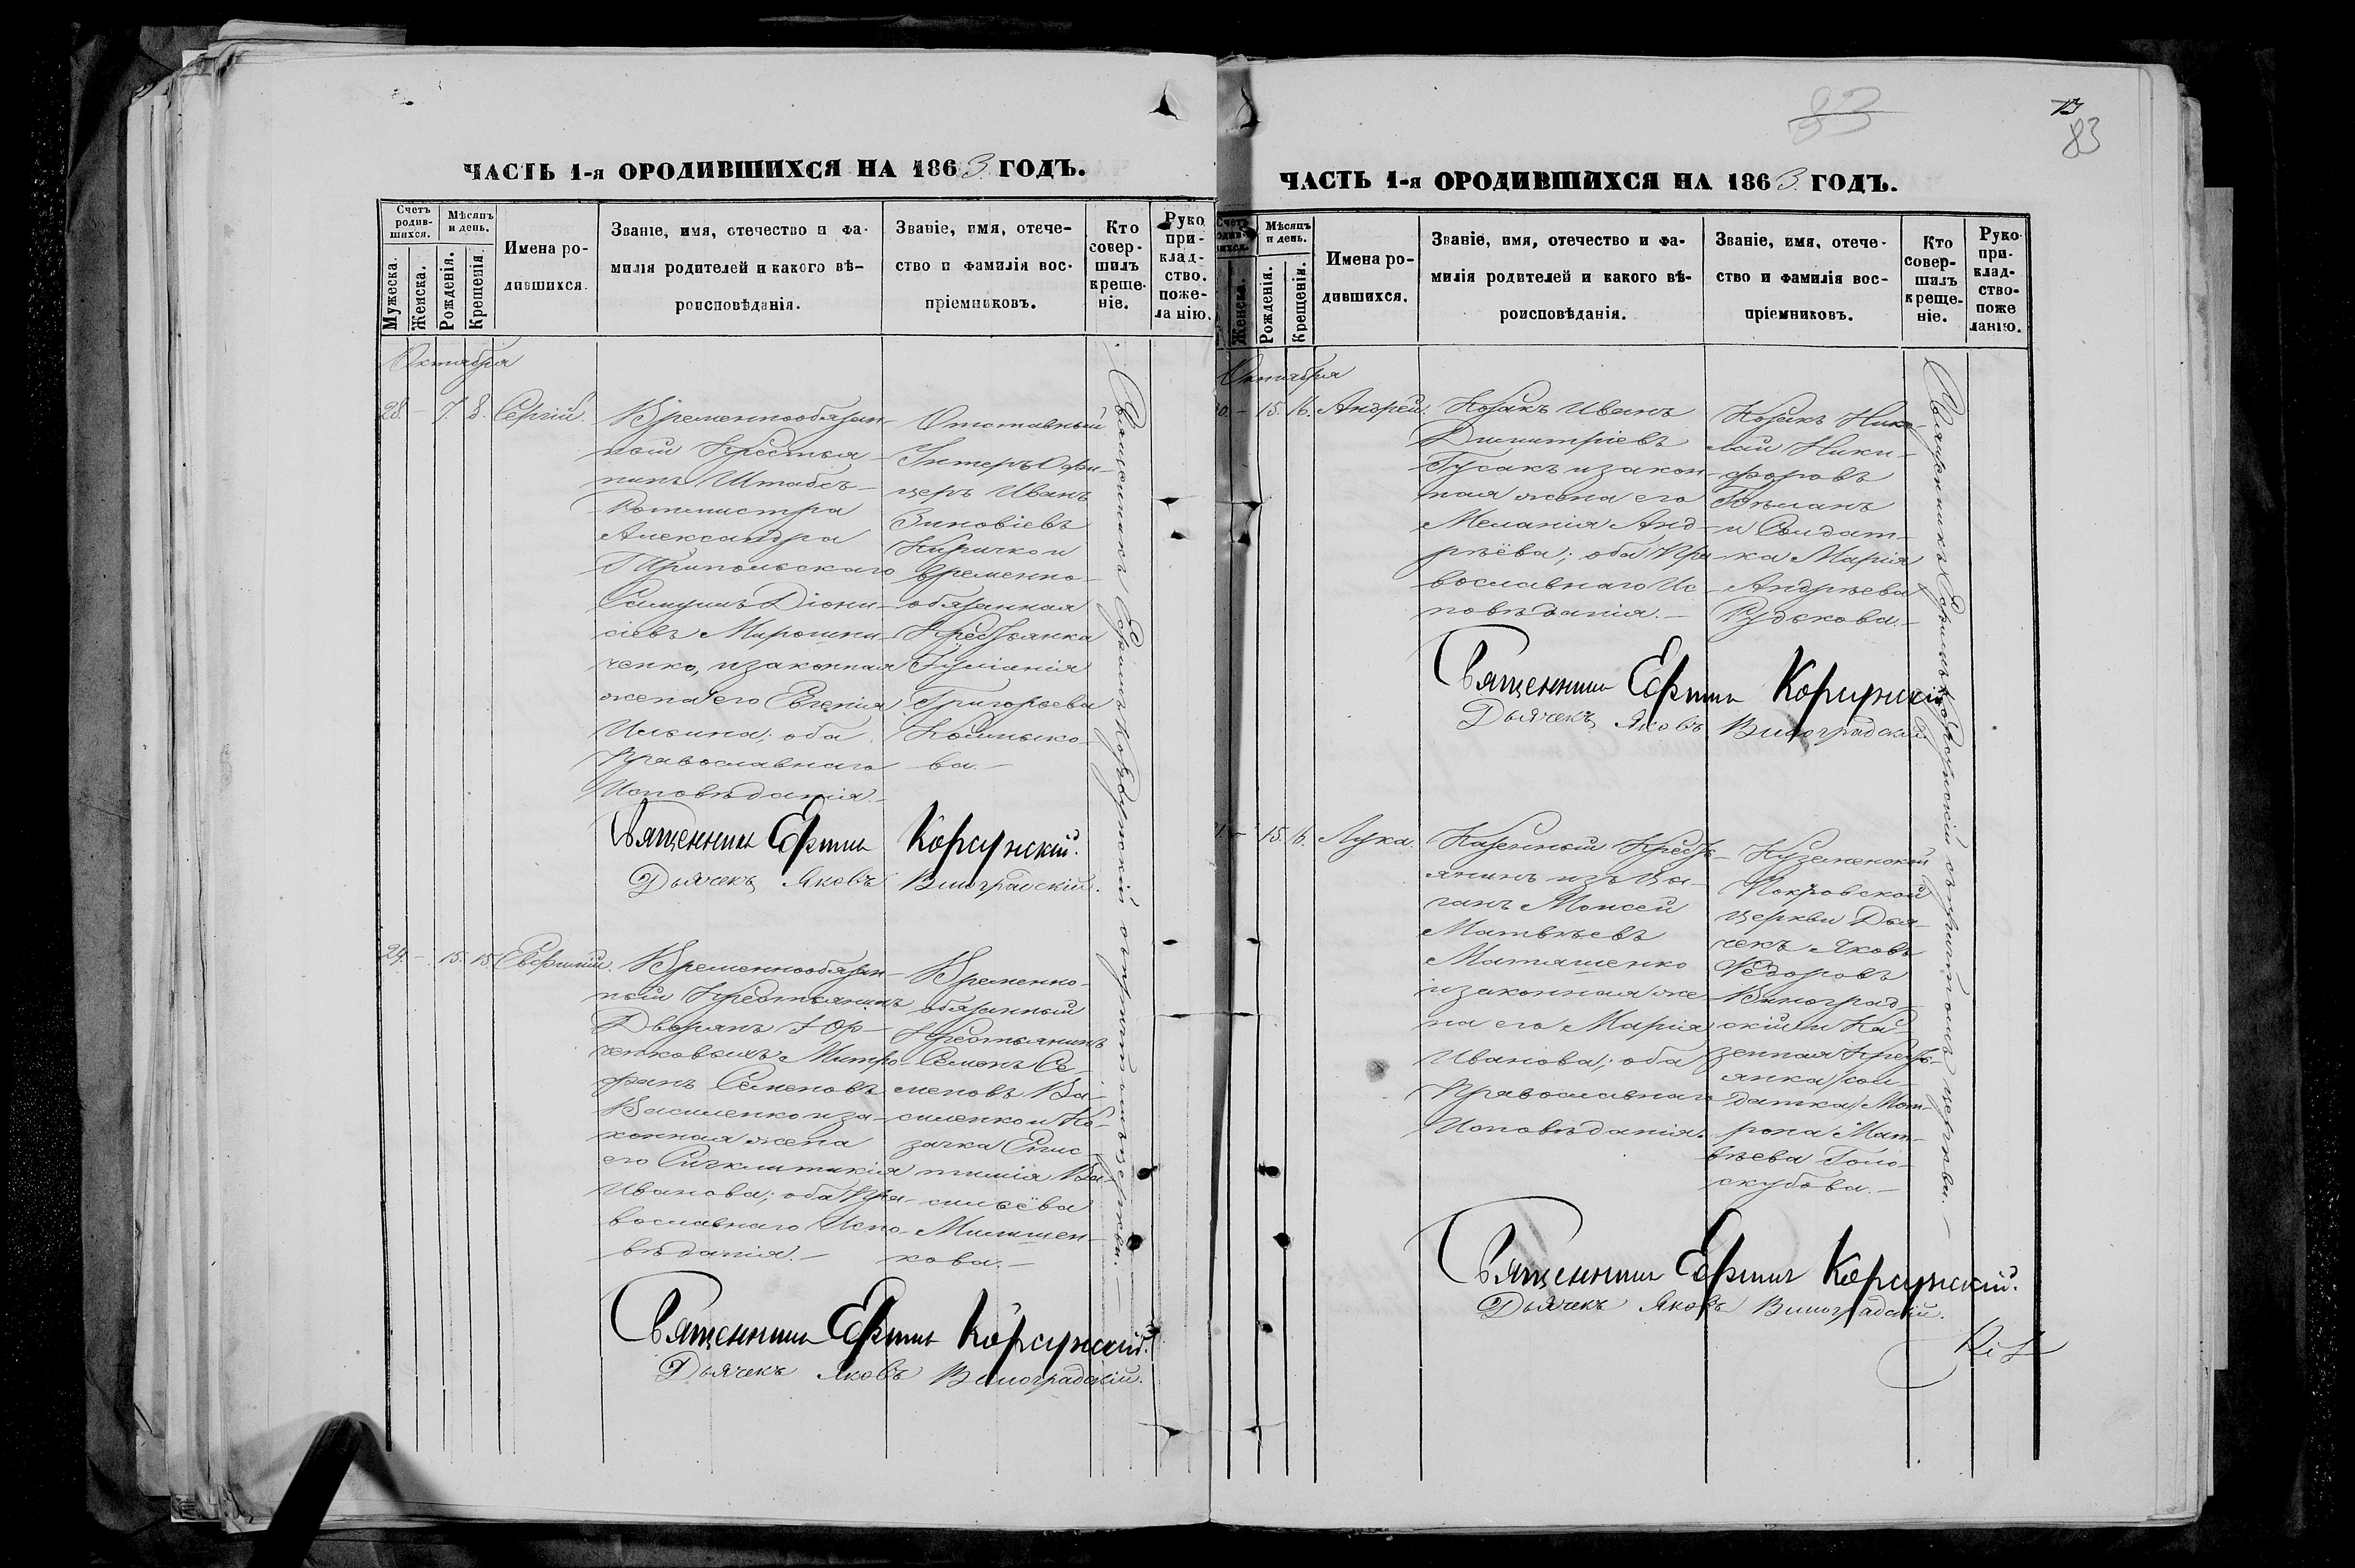 ЧАСТЬ 1-я ОРОДИВШИХСЯ НА 1863 ГОДЪ.
Счетъ родив-шихся.
Мѣсяцъ и день.
Мужеска.
Женска.
Рожденія.
Крещенія.
Имена ро-
дившихся.
Званіе, имя, отечество и фа-
милія родителей и какого вѣ-
роисповѣданія.
Званіе, имя, отече-
ство и фамилія вос-
пріемниковъ.
Кто
совер-
шилъ
креще-
ніе.
Руко
при-
клад-
ство.
поже-
ланію.
Октября
28. - 7. 8. Сергій.
Временнообязан-
ный Крестья-
нинъ Штабсъ-
Ротмистра
Александра
Трипольскаго
Самуилъ Діони-
сіевъ Мирошни-
ченко, и законная
жена его Евгенія
Ильина; оба
Православнаго
Исповѣданія.-
Отставный
Унтеръ Офи-
церъ Иванъ
Зиновіевъ
Киричко и
временно-
обязанная
Крестьянка
Іуліанія
Григорьева
Колмыко-
ва.-
Священникъ Ефимъ Корсунскій съ причтомъ церкви.
Священникъ Ефимъ Корсунскій.
Дьячекъ Яковъ Виноградскій.
29. - 15. 15. Евфимій.
Временнообязан-
ный Крестьянинъ
Дворянъ Юр-
ченковыхъ Митро-
фанъ Семеновъ
Василенко и за-
конная жена
его Синклитикія
Иванова; оба Пра-
вославнаго Испо-
вѣданія.-
Временно-
обязанный
Крестьянинъ
Семенъ Се-
меновъ Ва-
силенко и Ко-
зачка Епис-
тимія Ва-
сильёва
кова.-
Священникъ Ефимъ Корсунскій.
Дьячекъ Яковъ Виноградскій.
83
83
ЧАСТЬ 1-я ОРОДИВШИХСЯ НА 1863 ГОДЪ.
Счетъ
Мѣсяцъ и день.
Женска.
Рожденія.
Крещенія.
Имена ро-
дившихся.
Званіе, имя, отечество и фа-
милія родителей и какого вѣ-
роисповѣданія.
Званіе, имя, отече-
ство и фамилія вос-
пріемниковъ.
Кто
совер-
шилъ
креще-
ніе.
Руко-
при-
клад-
ство-
поже
ланію.
Октября
- 15. 16. Андрей.
Козакъ Иванъ
Димитріевъ
Гусакъ и закон-
ная жена его
Меланія Анд-
рѣёва; оба Пра-
вославнаго Ис-
повѣданія.-
Козакъ Нико-
лай Ники-
форовъ
и Солдат-
ка Марія
Андрѣева
Рудькова.-
Священникъ Ефимъ Корсунскій съ причтомъ церкви.-
Священникъ Ефимъ Корсунскій
Дьячекъ Яковъ Виноградскій
- 15. 16. Лука.
Казенный Кресть-
янинъ изъ Ца-
ганъ Моисей
Матвѣевъ
Матяшенко
и законная же-
на его Марія
Иванова; оба
Православнаго
Исповѣданія.
Покровской
церкви Дья-
чекъ Яковъ
Ѳедоровъ
Виноград-
скій и Ка-
зенная Кресть-
янка /сол-
датка/ Мот-
рона Мат-
вѣева Голо-
скубова.-
Священникъ Ефимъ Корсунскій.
Дьячекъ Яковъ Виноградскій.